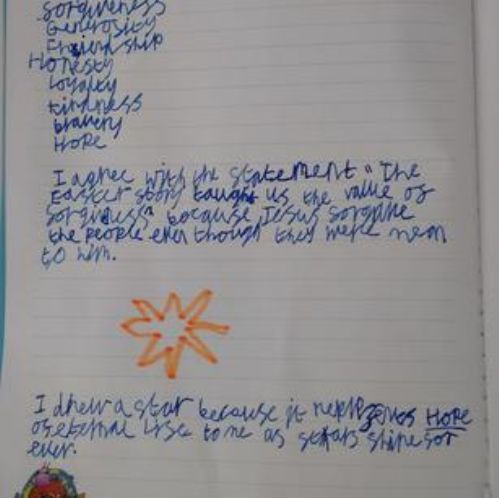 Sorgiveness
Generosity
Friendship
Honesty
Loyalty
kindness
bravery
HoPe
I agree with the statement "The
Easter story taught us the value of
Sorgivness" because Jesus Sorgave
the people even though they were mean
to him.
I drew a star because it HoPe
of eternal life to me as stars shine for
ever.